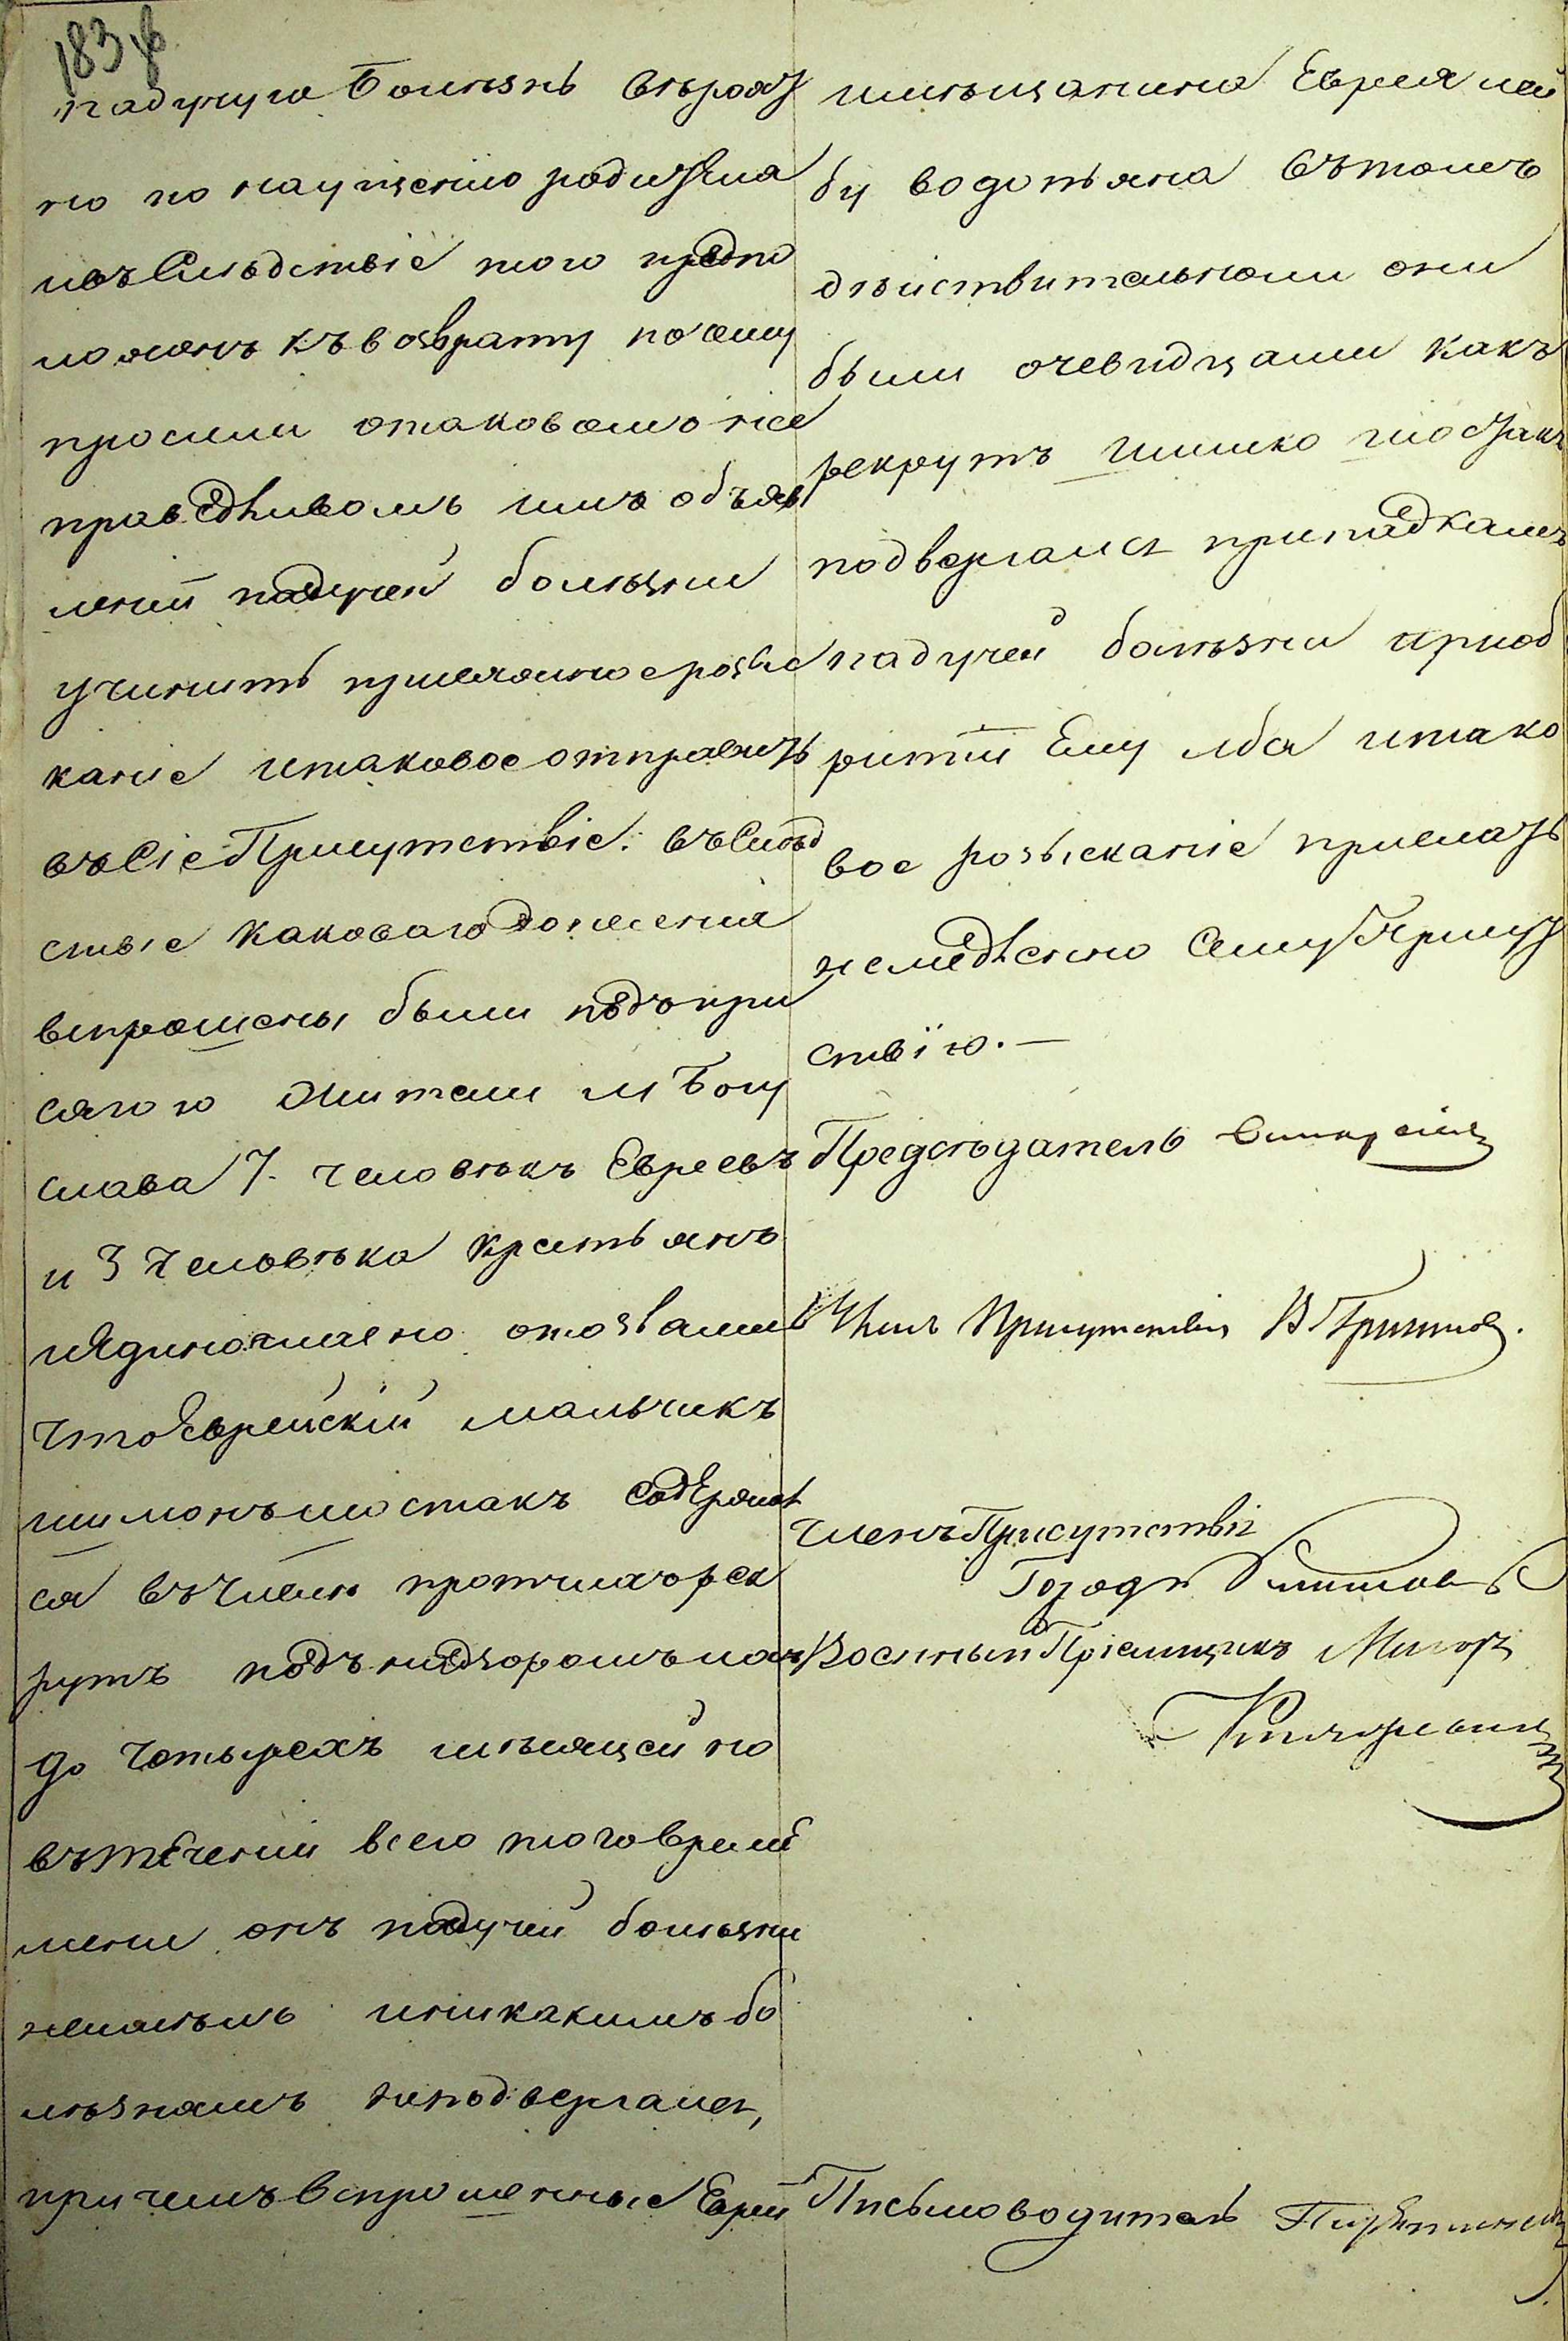 183 об
падучую болѣзнь вѣроят
но по наущенію родителя
ивъ слѣдствіе того предпо
ложенъ къ возврату почему
просили отаковомъ нес
праведливомъ имъ объяв
леніи падучей болѣзни
учинить примѣчанное розыс
каніе итаковое отправить
въ сіе Присутствіе: въ слѣд
ствіе каковаго донесенія
впрошены были подъ при
сягою жители м Богу
слава 7. человѣкъ Евреевъ
и 3 человѣка крестьянъ
иединогласно отозвались
что еврейскій мальчикъ
шимонъ шостакъ содержал
ся въ числѣ протчихъ рек
рутъ подъ надзоромъ
до четырехъ мѣсяцей но
въ теченіи всего того врем
мени онъ падучей болѣзни
неимѣлъ иникакимъ бо
лѣзнямъ неподвергался,
причемъ впрошенные Евреи
мѣщанина Еврея лей
бу водопьяна вѣтомъ
дѣйствительноли они
были очевидцами какъ
рекрутъ шимко шостакъ
подвергался припадкамъ
падучей болѣзни приоб
ритіи ему лба итако
вое розысканіе прислать
немедленно сему Присут
ствію. —
Предсѣдатель
Членъ Присутствія В
Членъ Присутствія
Городн
Военный Пріемщикъ Маіоръ
Письмоводитель